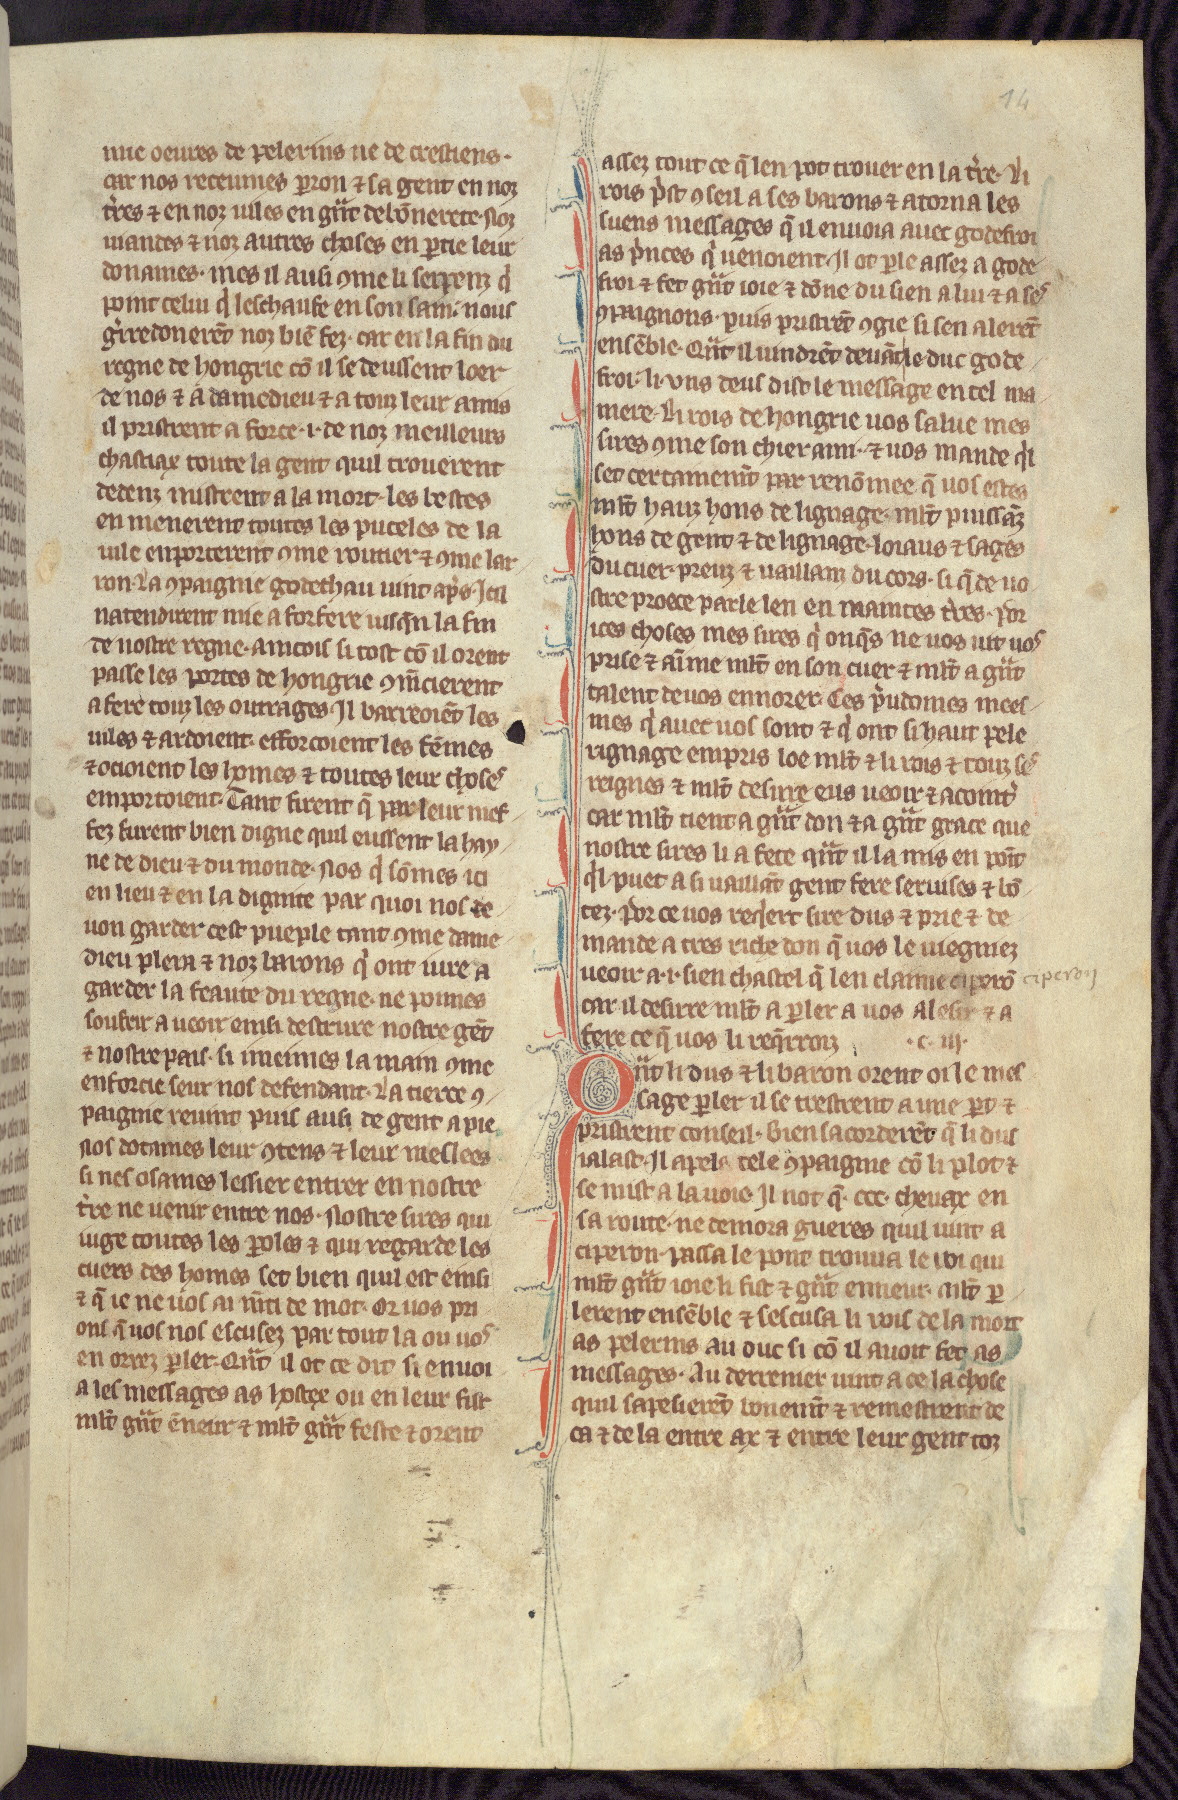 14
mie oeures de pelerins ne de crestiens·
car nos receumes ꝑron ⁊ sa gent en noz
t̾res ⁊ en noz uiles en gͣnt debōnerete· Noz
uiandes ⁊ noz autres choses en ꝑtie leur
donames· mes il ausi ꝯme li serpenz qͥ
point celui qͥ leschaufe en son sain· nous
gͥrredonerēt noz biē fez· car en la fin du
regne de hongrie cō il se deussent loer
de nos ⁊ a damedieu ⁊ a touz leur amis
il pristrent a force ·i· de noz meilleurs
chastiax toute la gent quil trouerent
dedenz mistrent a la mort· les bestes
en menerent toutes les puceles de la
uile enporterent ꝯme routier ⁊ ꝯme lar
ron· La ꝯpaignie godechau uint apͤs· Icil
natendirent mie a forfere iusqͣn la fin
de nostre regne· aincois si tost cō il orent
passe les portes de hongrie ꝯm̄cierent
a fere touz les outrages Il barreoiēt les
uiles ⁊ ardoient· efforcoient les fēmes
⁊ ocioient les homes ⁊ toutes leur choses
emportoient· Tant firent q̄ par leur mef
fez furent bien digne quil eussent la hay
ne de dieu ⁊ du monde· Nos qͥ sōmes ici
en lieu ⁊ en la dignite par quoi nos de
uon garder cest pueple tant ꝯme dame
dieu plera ⁊ noz barons qͥ ont iure a
garder la feaute du regne· ne poimes
soufrir a ueoir einsi destrure nostre gēt
⁊ nostre pais· si imeimes la main ꝯme
enforcie seur nos defendant· La tierce ꝯ
paignie reuint puis ausi de gent a pie
Nos dotames leur ꝯtens ⁊ leur meslees
si nes osames lessier entrer en nostre
t̾re ne uenir entre nos· Nostre sires qui
iuge toutes les ꝑoles ⁊ qui regarde les
cuers des homes set bien quil est einsi
⁊ q̄ ie ne uos ai m̄ti de mot· Or uos pri
ons q̄ uos nos escusez par tout la ou uos
en orrez ꝑler· Qͣnt il ot ce dit si enuoi
a les messages as hostex ou en leur fist
ml̄t gͣnt ēneur ⁊ ml̄t gͣnt feste ⁊ orent
assez tout ce q̄ len pot trouer en la t̾re· Li
rois pͥst ꝯseil a ses barons ⁊ atorna les
suens messages q̄ il enuoia auec godefroi
as pͥnces qͥ uenoient· Il ot ꝑle assez a gode
froi ⁊ fet gͣnt ioie ⁊ dōne du sien a lui ⁊ a ses
ꝯpaignons· puis pristrēt ꝯgie si sen alerēt
ensēble· Qͣnt il uindrēt deuāt le duc gode
froi· li ·vns deus dist le message en tel ma
niere· Li rois de hongrie uos salue mes
sires ꝯme son chier ami· ⁊ uos mande qͥl
set certainem̄t par renōmee q̄ uos estes
ml̄t hauz hons de lignage· ml̄t puissāz
hons de gent ⁊ de lignage· loiaus ⁊ sages
du cuer· preuz ⁊ uaillanz du cors· si q̄ de uo
stre proece parle len en maintes t̾res· Por
ices choses mes sires qͥ onqͣs ne uos uit uos
prise ⁊ aīme ml̄t en son cuer ⁊ ml̄t a gͣnt
talent de uos ennorer· Ces pͤudomes mees
mes qͥ auec uos sont ⁊ qͥ ont si haut pele
rignage empris loe ml̄t ⁊ li rois ⁊ touz ses
reignes ⁊ ml̄t desirre eus ueoir ⁊ acoint̾
car ml̄t tient a gͣnt don ⁊ a gͣnt grace que
nostre sires li a fete qͣnt il la mis en poīt
qͥl puet a si uaillāt gent fere seruises ⁊ bō
tez· Por ce uos reqͥert sire dus ⁊ prie ⁊ de
mande a tres riche don q̄ uos le uiegniez
ueoir a ·i· sien chastel q̄ len claime ciperō
ciperon
car il desirre ml̄t a ꝑler a uos Alesir ⁊ a
fere ce q̄ uos li reqͥrroiz ·c· iii·
Qͣnt li dus ⁊ li baron orent oi le mes
sage ꝑler il se trestrent a une ꝑt ⁊
pristrent conseil· bien sacorderēt q̄ li dus
ialast· Il apela tele ꝯpaignie cō li plot ⁊
se mist a la uoie· Il not q̄ ·ccc· cheuax en
sa route· ne demora gueres quil uint a
ciperon· passa le pont trouua le roi qui
ml̄t gͣnt ioie li fist ⁊ gͣnt enneur· Ml̄t ꝑ
lerent ensēble ⁊ sescusa li rois de la mort
as pelerins au duc si cō il auoit fet as
messages· Au derrenier uint a ce la chose
quil sapesierēt bonem̄t ⁊ remestrent de
ca ⁊ de la entre ax ⁊ entre leur gent toz